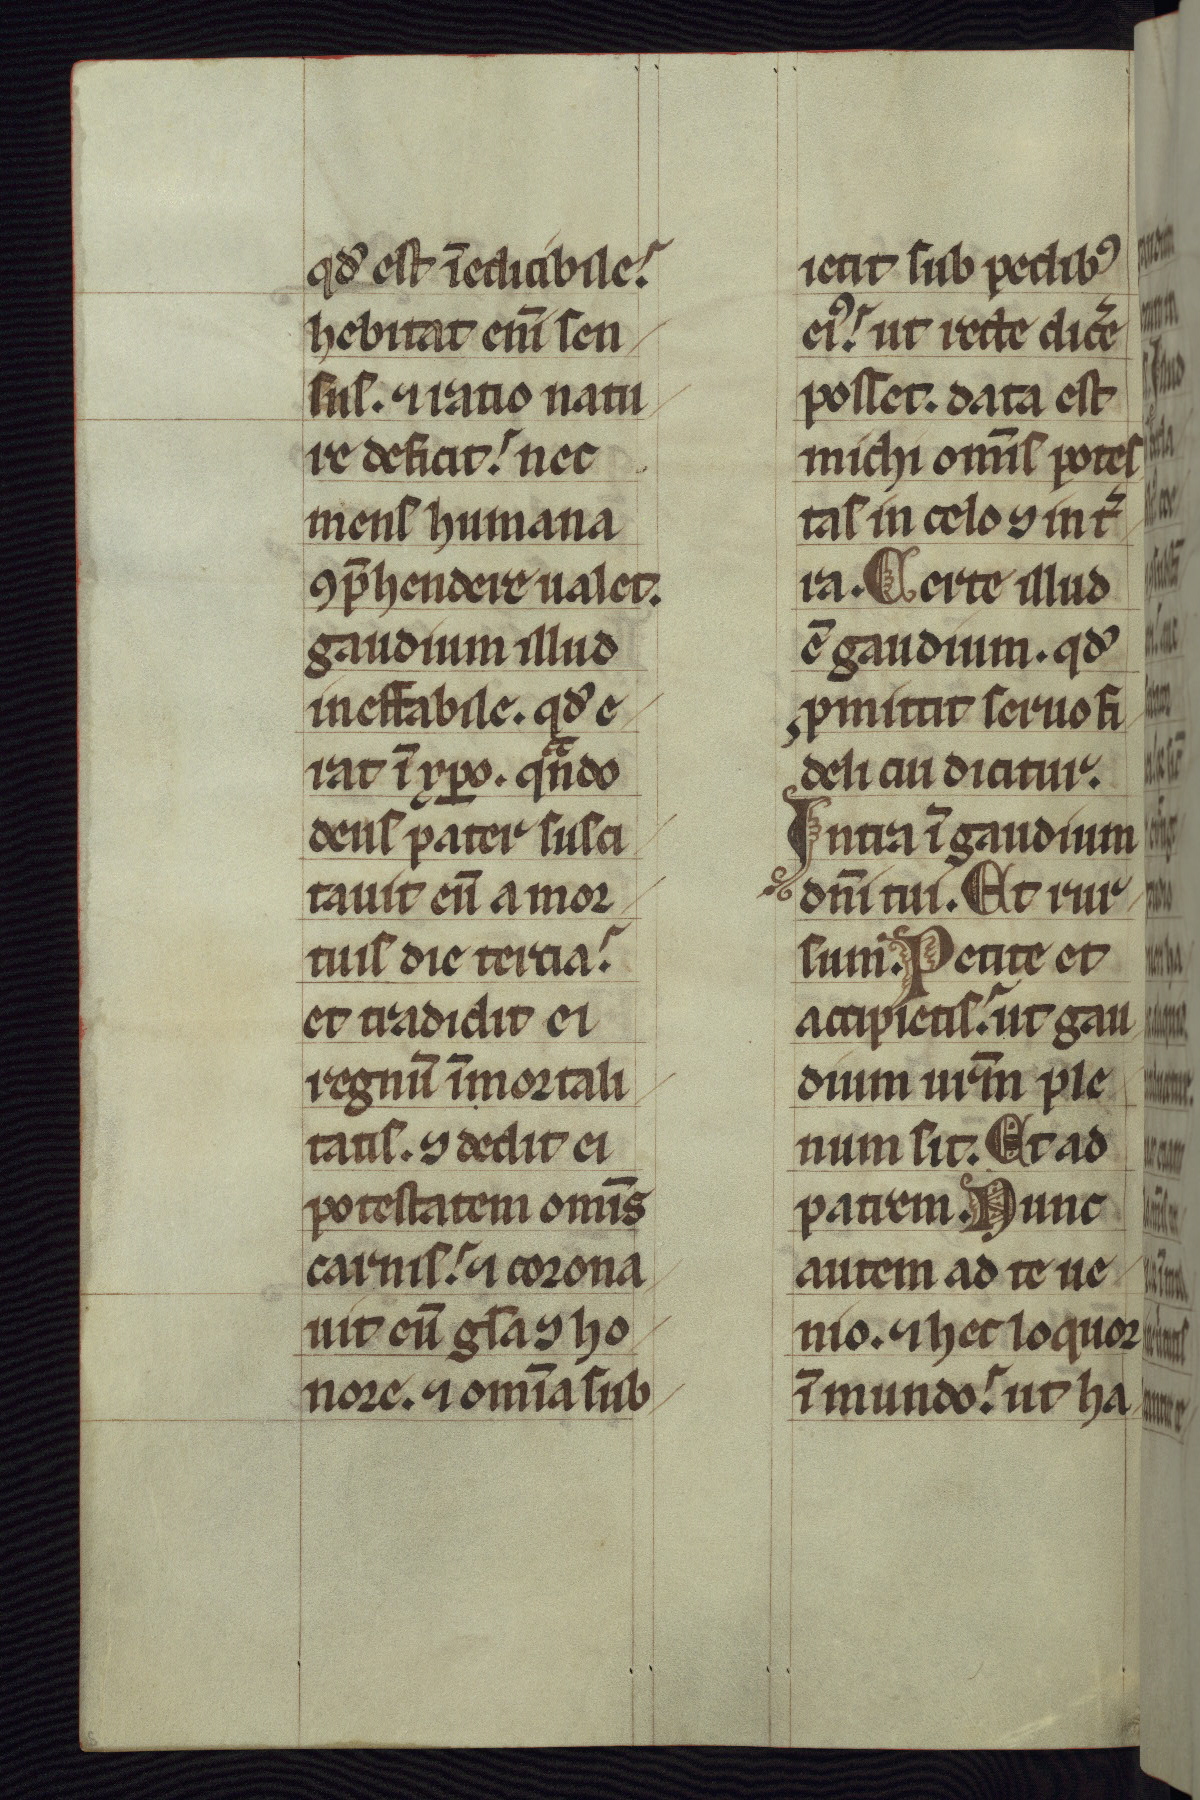 qđ est īedicibile.
hebitat enī sen
sus. ⁊ ratio natu
re deficit. nec
mens humana
ꝯp̄hendere ualet.
gaudium illud
ineffabile. qđ e
rat ī xp̄o. qᵃndo
deus pater susci
tauit eū a mor
tuis die tercia.
et tradidit ei
regnū īmortali
tatis. ⁊ dedit ei
potestatem om̄is
carnis. ⁊ corona
uit eū gl̄a ⁊ ho
nore. ⁊ om̄ia sub
iecit sub pedibꝰ
eiꝰ. ut recte dic̄e
posset. data est
michi om̄is potes
tas in celo ⁊ in t̄
ra. Certe illud
ē gaudium. qđ
ꝓmittit seruo fi
deli cui dicitur.
Intra ī gaudium
dn̄i tui. Et rur
sum. Petite et
accipietis. ut gau
dium ur̄m ple
num sit. Et ad
patrem. Nunc
autem ad te ue
nio. ⁊ hec loquor
ī mundo. ut ha